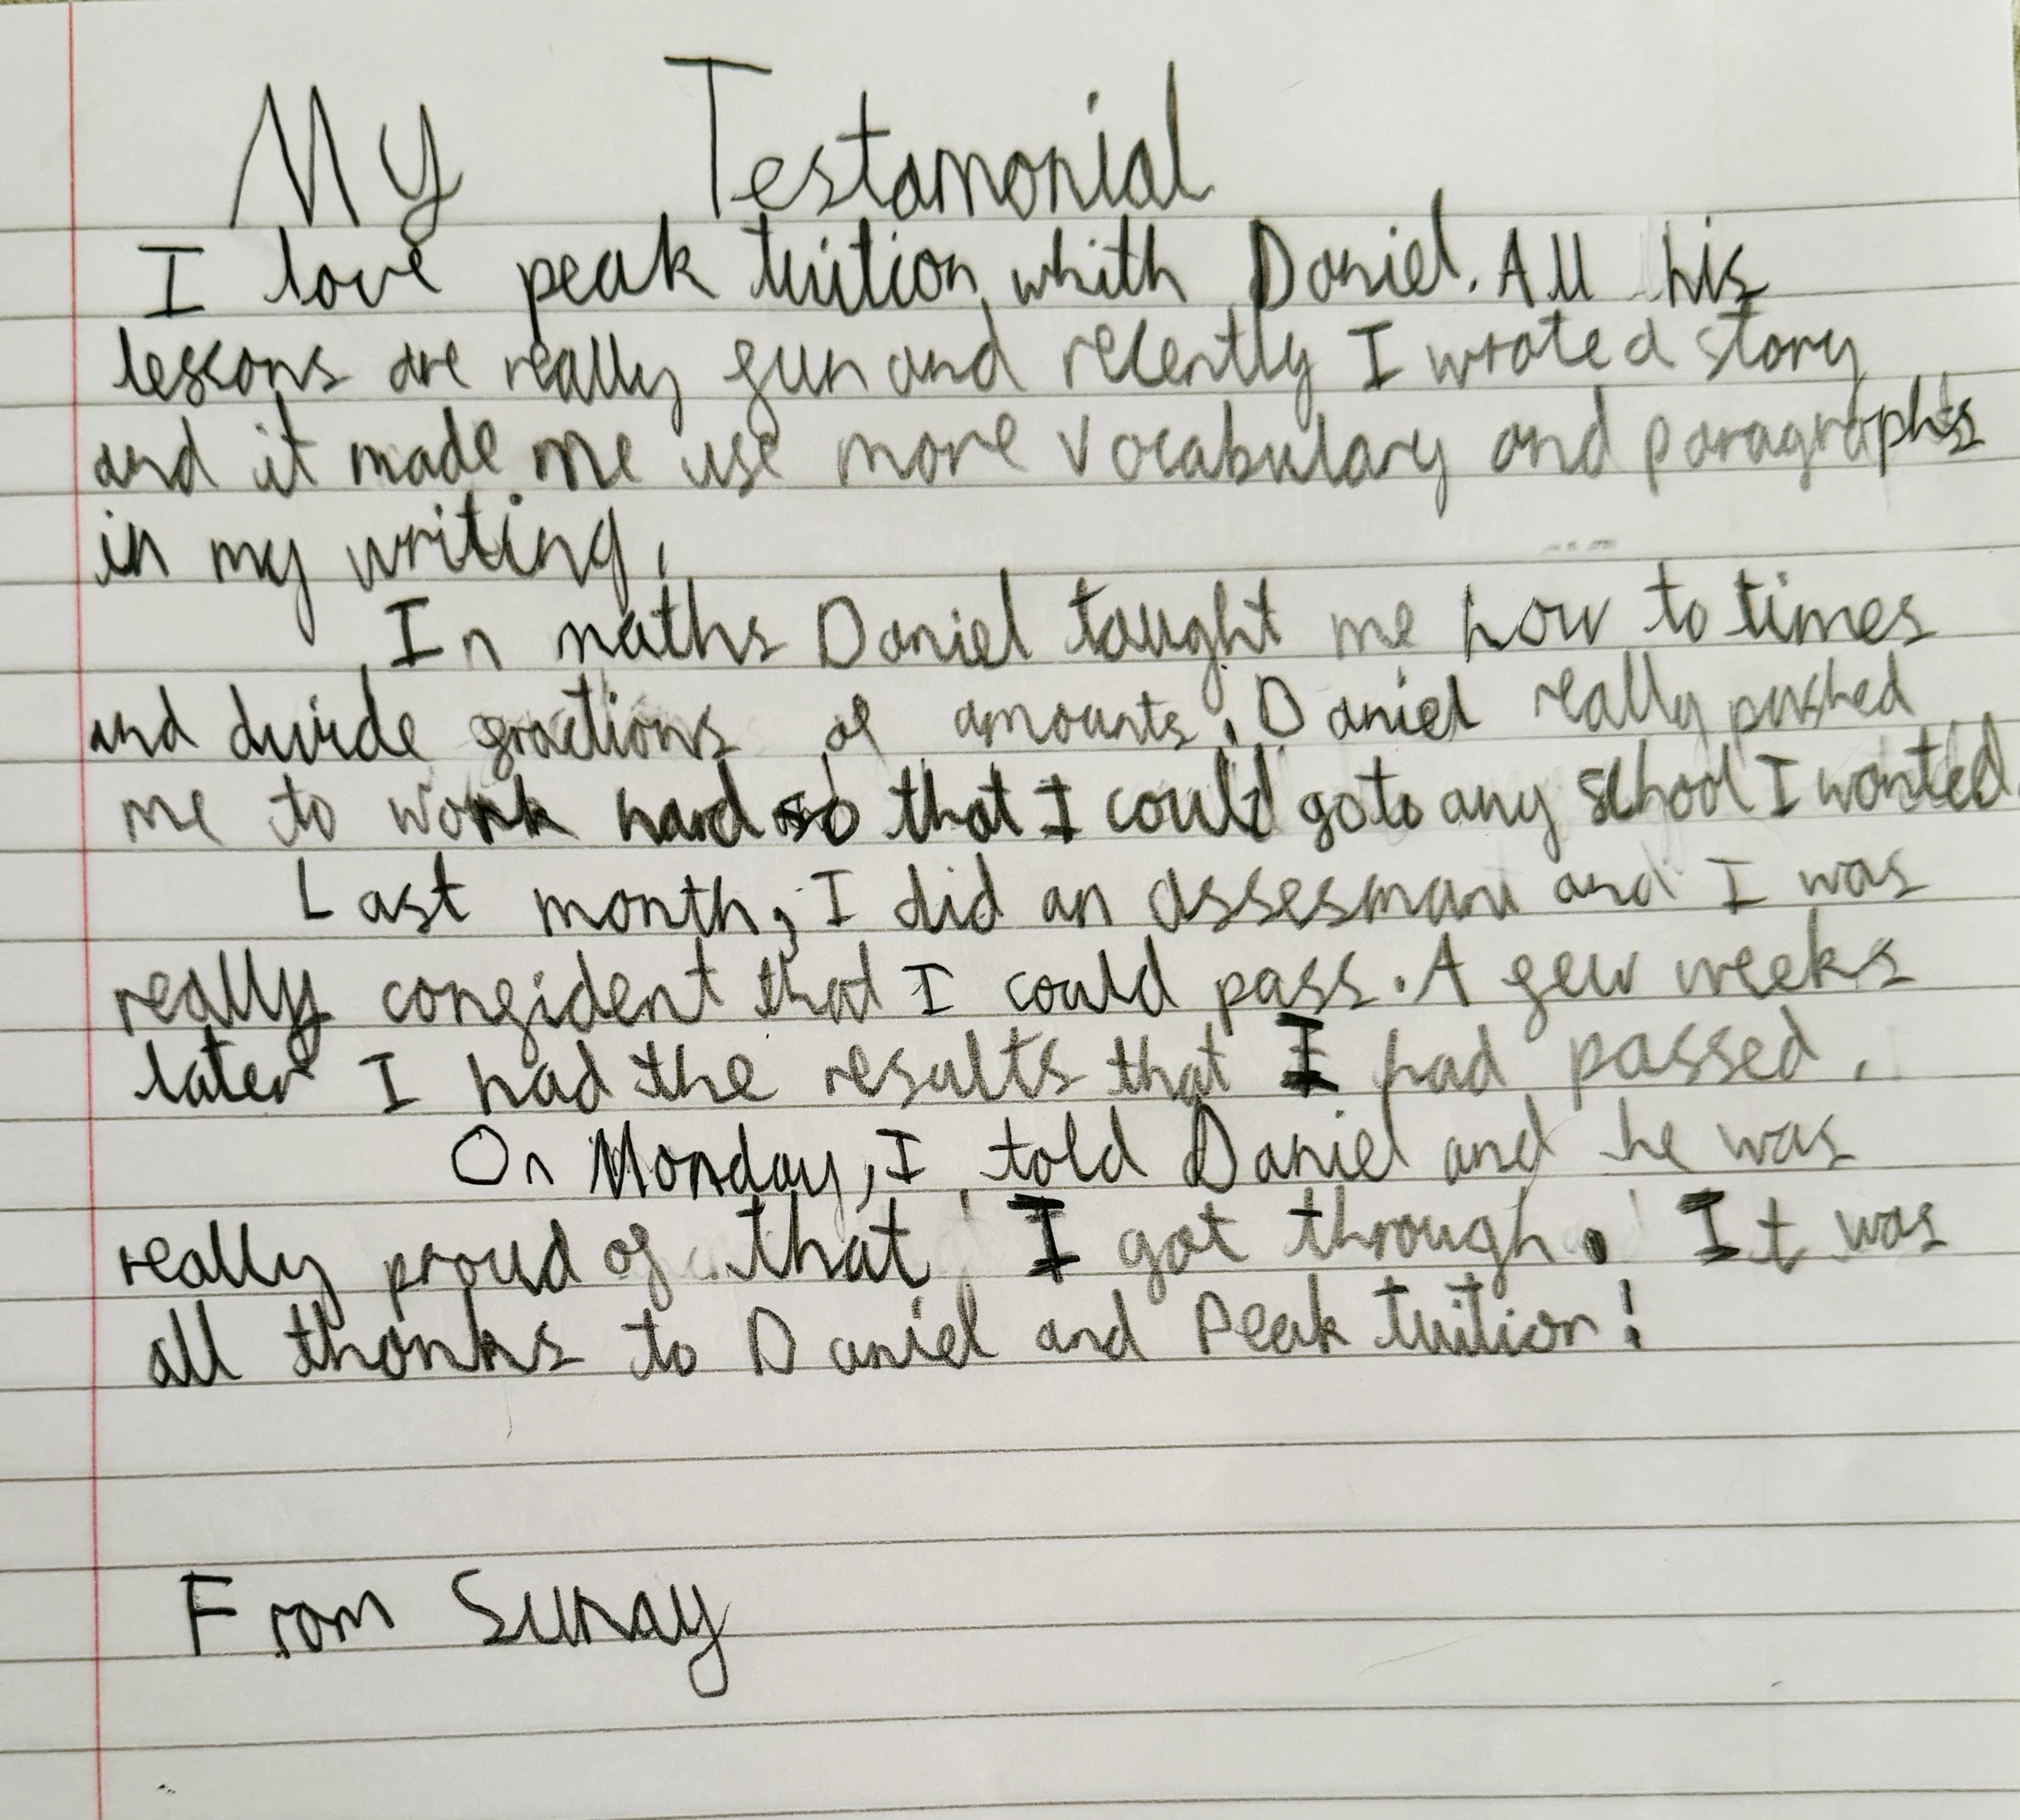 My Testamonial
I love peak tuition whith Daniel. All his
lessons are really fun and recently I wrote a story
and it made me use more vocabulary and paragraphs
in my writing.
In maths Daniel taught me how to times
and divide fractions of amounts. Daniel really pushed
me to work hard so that I could go to any school I wanted.
Last month, I did an assesmant and I was
really confident that I could pass. A few weeks
later I had the results that I had passed.
On Monday, I told Daniel and he was
really proud of that I got through. It was
all thanks to Daniel and Peak tuition!
From Sunay